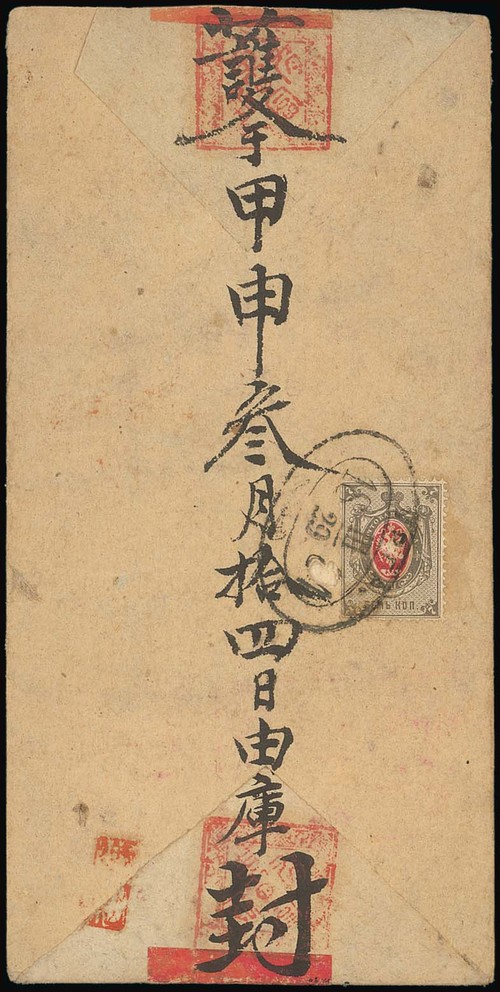 護于甲申叁月拾四日由庫封
СЕМЬ КОП.
29